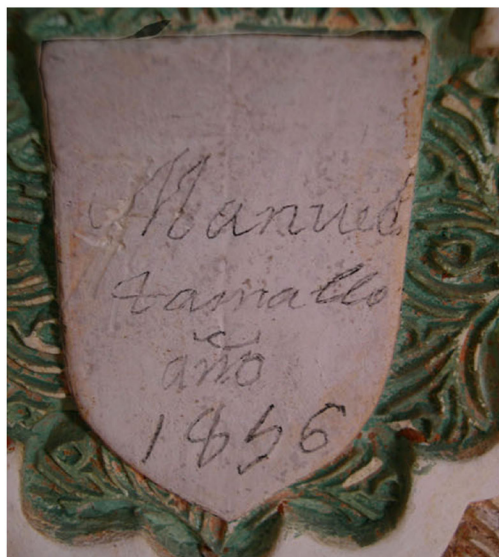 Manuel
tamallo
año
1856